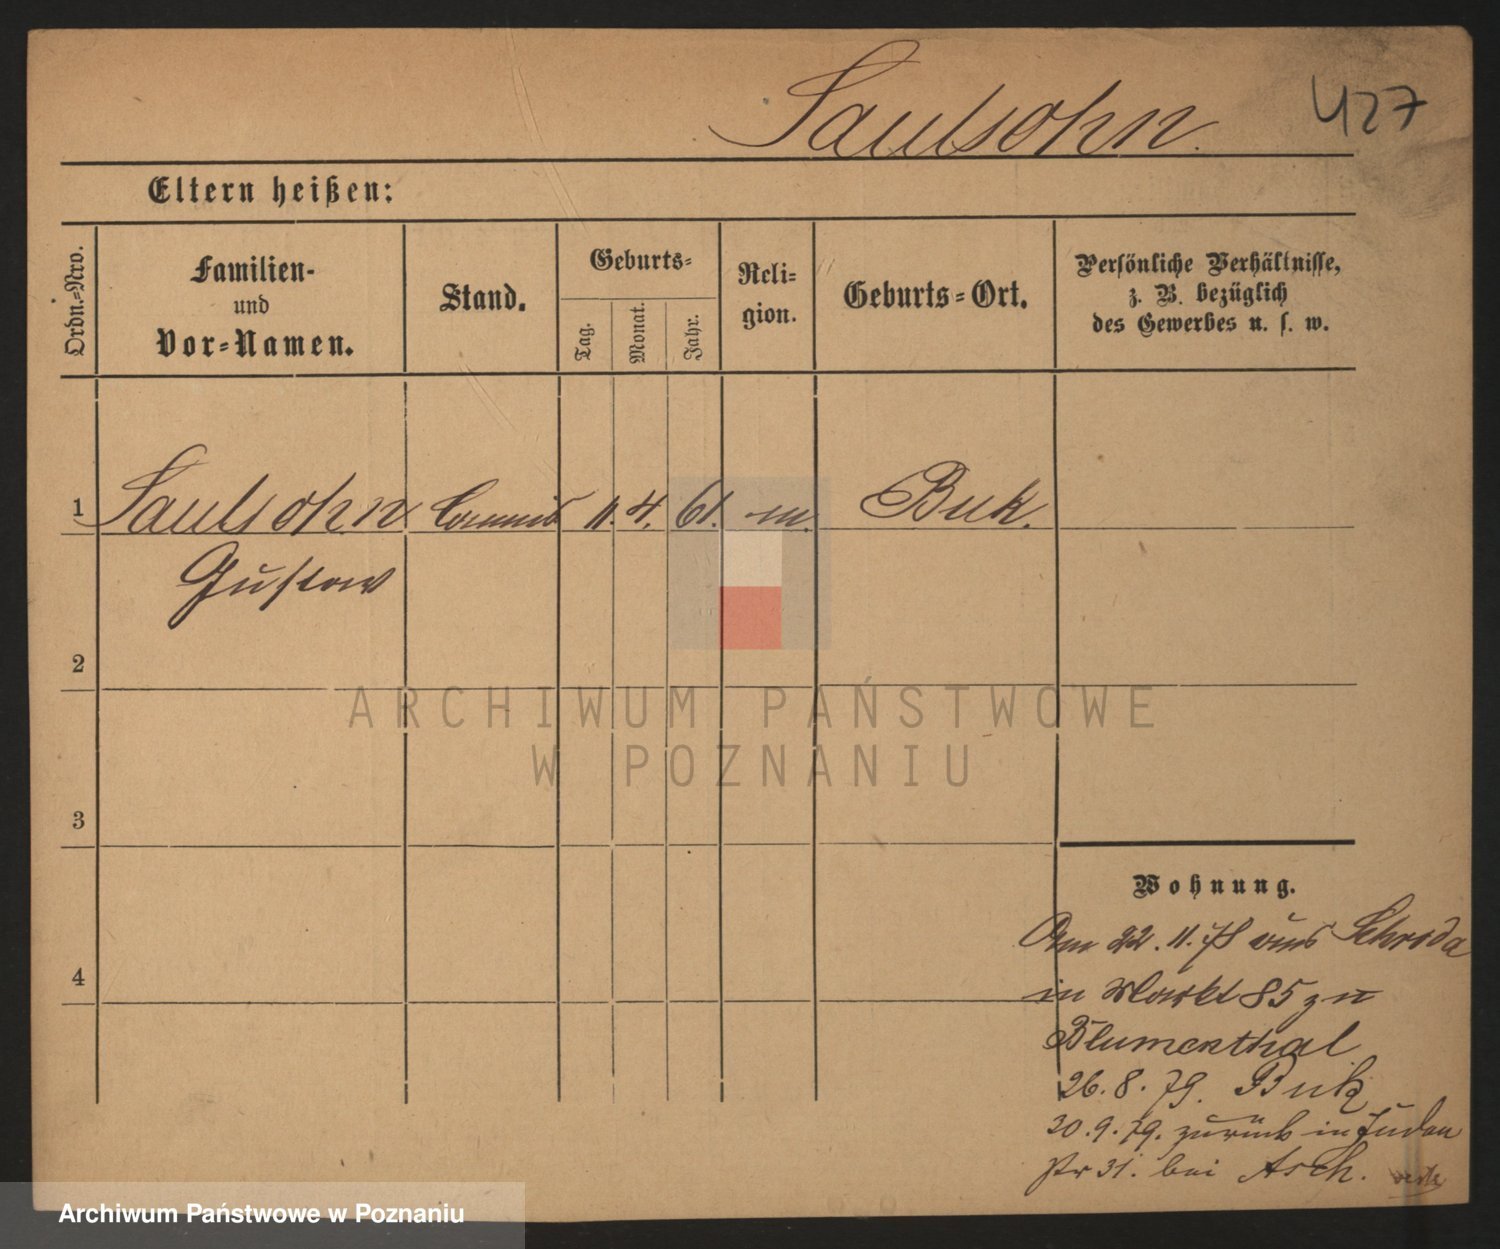 Saulsohn.
427
Eltern heißen:
Ordn.-Nro.
Familien-
und
Vor-Namen.
Stand.
Geburts-
Tag.
Monat.
Jahr.
Reli-
gion.
Geburts-Ort.
Persönliche Verhältnisse,
z. B. bezüglich
des Gewerbes u. s. w.
1 Saulsohn Commis 11. 4. 61. m. Buk.
Gustav
2
3
4
Wohnung.
Am 22. 11. 78 aus Schroda
in Markt 85 zu
Blumenthal
26. 8. 79. Buk
30. 9. 79. zurück in Juden
str 31. bei Asch.
ARCHIWUM PAŃSTWOWE
W POZNANIU
Archiwum Państwowe w Poznaniu